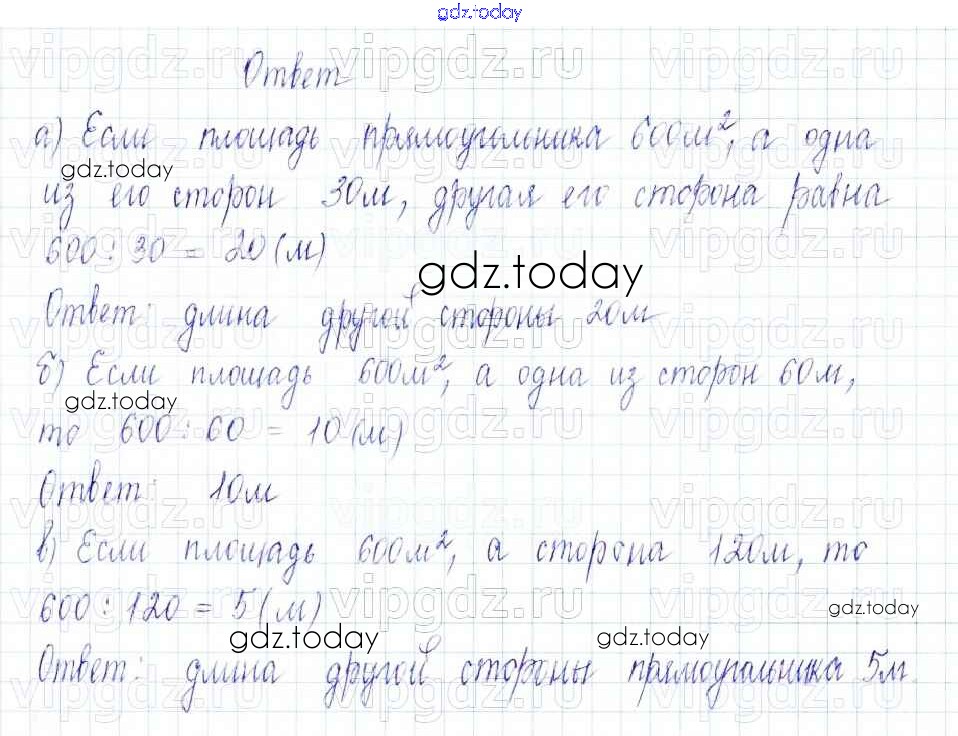 gdz.today
vipgdz.ru vipgdz.ru vipgdz.ru
Ответ
а) Если площадь прямоугольника 600м², а одна
gdz.today
из его сторон 30м, другая его сторона равна
600 : 30 = 20 (м)
gdz.today
Ответ: длина другой стороны 20м
б) Если площадь 600м², а одна из сторон 60м,
gdz.today
то 600 : 60 = 10 (м)
Ответ: 10м
в) Если площадь 600м², а сторона 120м, то
600 : 120 = 5 (м)
gdz.today
gdz.today gdz.today
Ответ: длина другой стороны прямоугольника 5м.